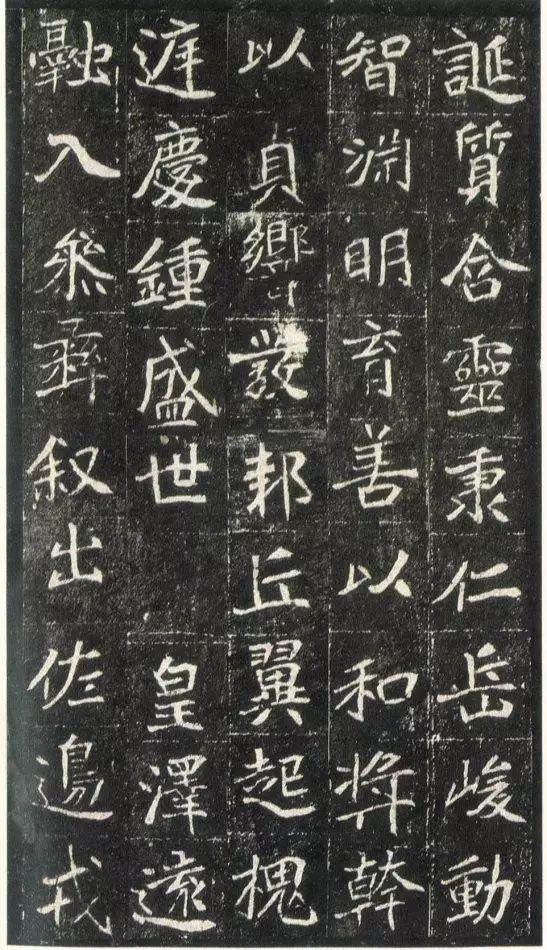 誕質含靈秉仁岳峻動
智渊明育善以和獎幹
以貞響發邦丘翼起槐
庭慶鍾盛世皇澤遠
融入參彝叙出佐邊戎